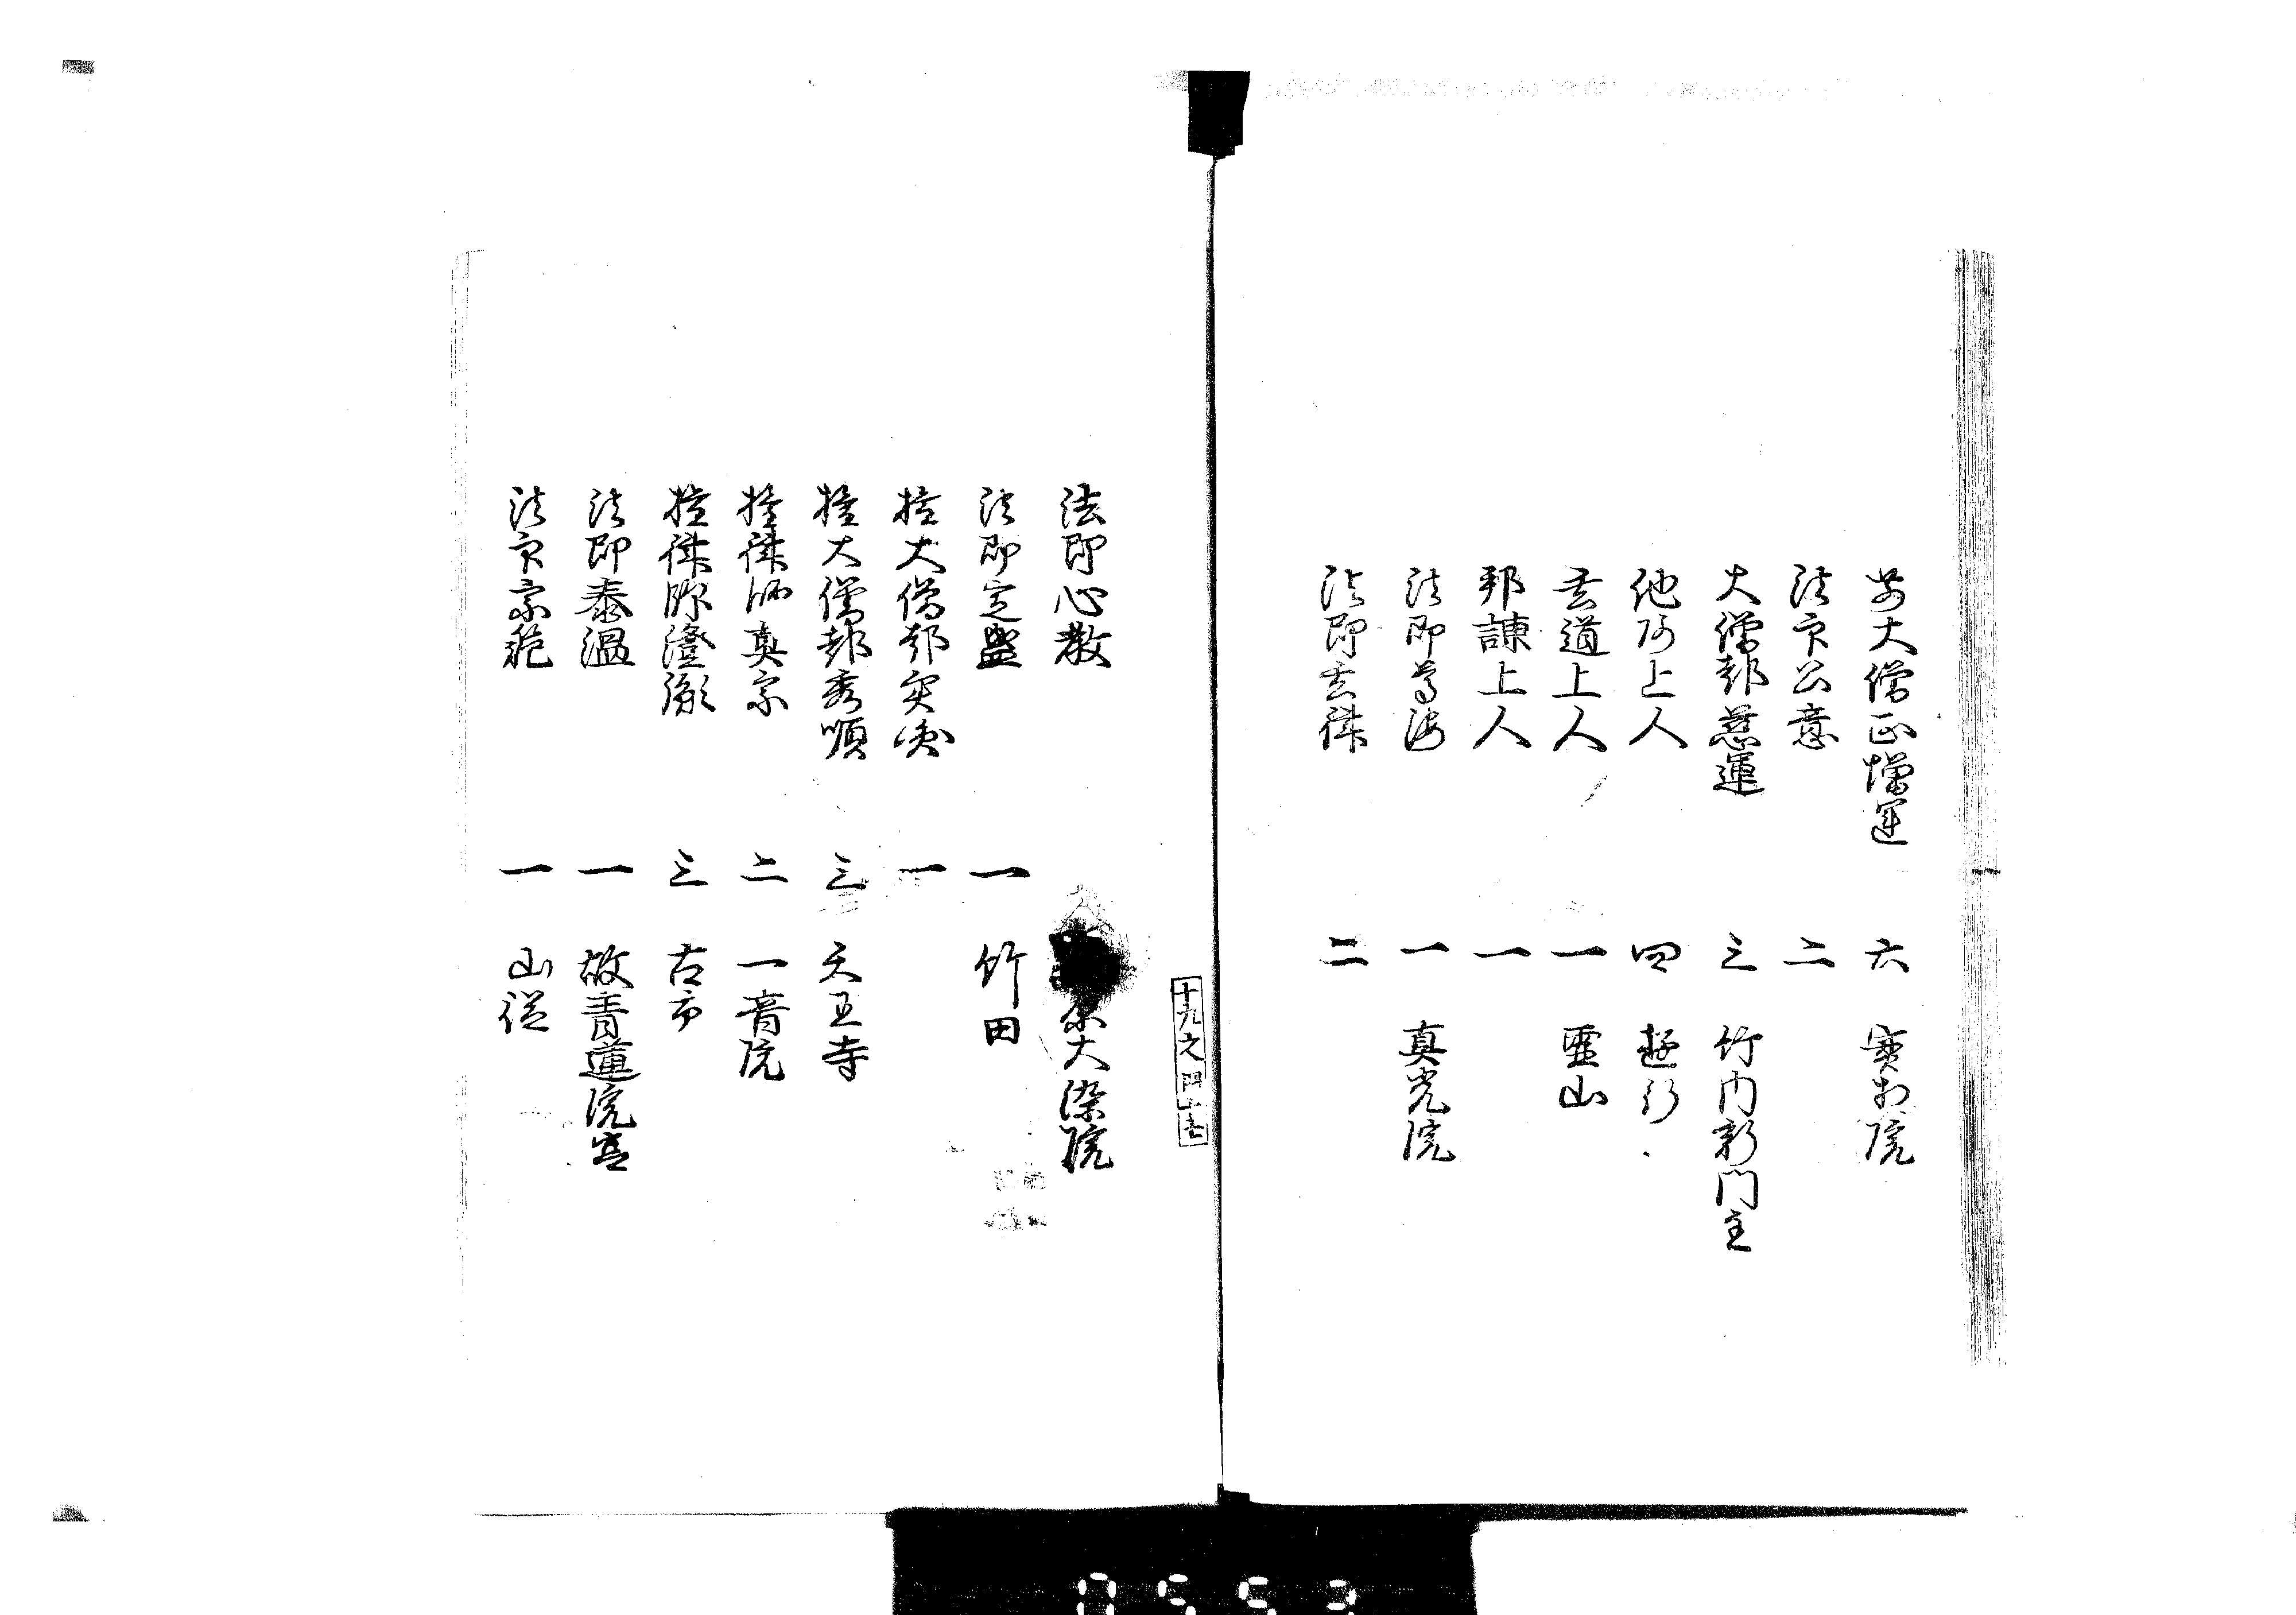 前大僧正増運 六 実相院
法印公意 二
大僧都慈運 三 竹内新門主
他阿上人 四 遊行
玄道上人 一 霊山
邦諫上人 一
法印尊海 一 真光院
法印玄律 二
十九之四十七
法印心教 大染院
法印定盛 一 竹田
権大僧都実 一
権大僧都秀順 三 天王寺
権律師真宗 二 一音院
権律師澄胤 三 古市
法印泰温 一 故青蓮院宮
法印宗 一 山徒